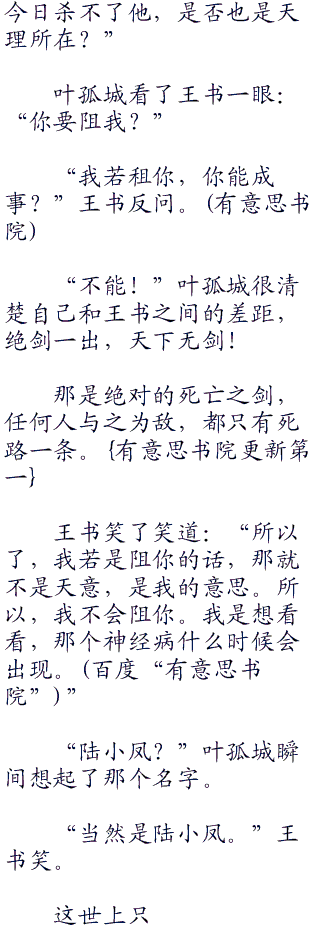 今日杀不了他，是否也是天
理所在？”
叶孤城看了王书一眼：
“你要阻我？”
“我若租你，你能成
事？”王书反问。(有意思书
院)
“不能！”叶孤城很清
楚自己和王书之间的差距，
绝剑一出，天下无剑！
那是绝对的死亡之剑，
任何人与之为敌，都只有死
路一条。{有意思书院更新第
一}
王书笑了笑道：“所以
了，我若是阻你的话，那就
不是天意，是我的意思。所
以，我不会阻你。我是想看
看，那个神经病什么时候会
出现。(百度“有意思书
院”)”
“陆小凤？”叶孤城瞬
间想起了那个名字。
“当然是陆小凤。”王
书笑。
这世上只